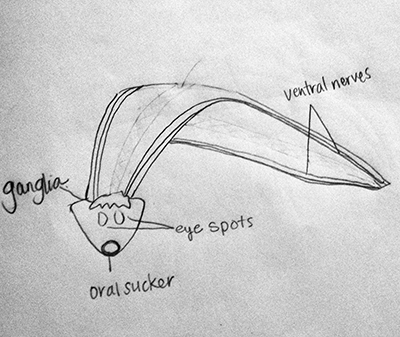 ventral nerves
ganglia
eye spots
oral sucker